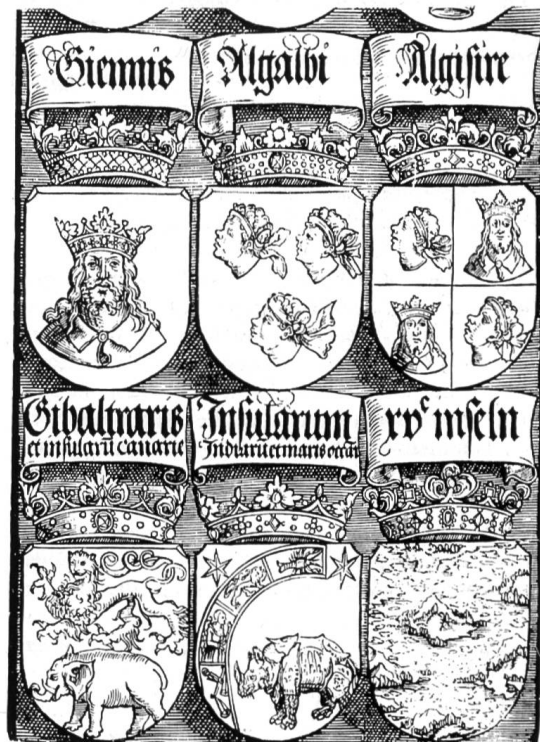 Giennis
Algalbi
Algisire
Gibaltraris
et insularū canarie
Insularum
Indiarū et maris occāi
xvᶜ inseln